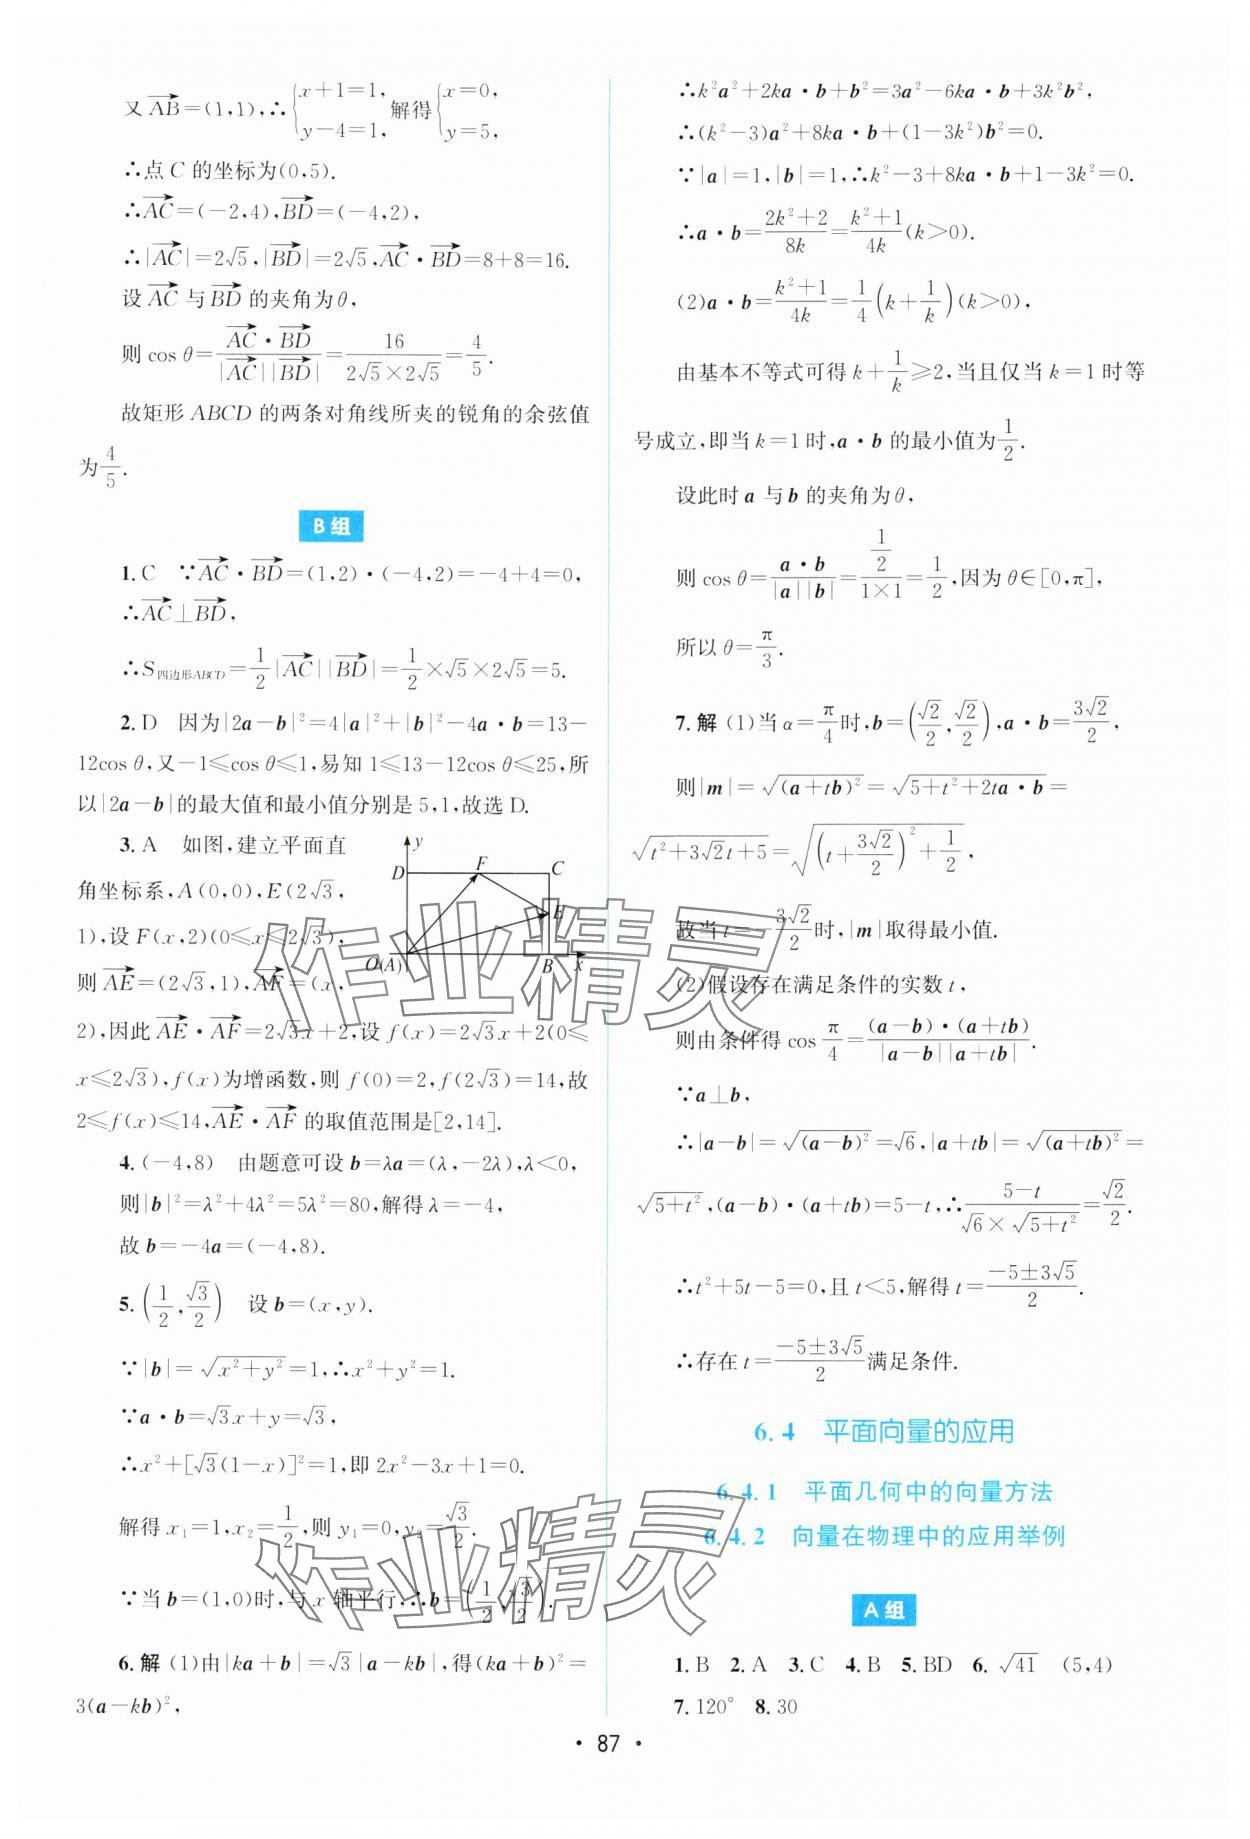 又$\overrightarrow{AB}$=(1,1),∴$\begin{cases}x+1=1,\\y-4=1,\end{cases}$解得$\begin{cases}x=0,\\y=5,\end{cases}$
∴点 C 的坐标为(0,5).
∴$\overrightarrow{AC}$=(-2,4),$\overrightarrow{BD}$=(-4,2),
∴|$\overrightarrow{AC}$|=2√5,|$\overrightarrow{BD}$|=2√5,$\overrightarrow{AC}$·$\overrightarrow{BD}$=8+8=16.
设 $\overrightarrow{AC}$ 与 $\overrightarrow{BD}$ 的夹角为θ,
则 cos θ=$\frac{\overrightarrow{AC}·\overrightarrow{BD}}{|\overrightarrow{AC}||\overrightarrow{BD}|}=\frac{16}{2\sqrt5×2\sqrt5}=\frac45$.
故矩形 ABCD 的两条对角线所夹的锐角的余弦值
为$\frac45$.
B 组
1. C ∵$\overrightarrow{AC}$·$\overrightarrow{BD}$=(1,2)·(-4,2)=-4+4=0,
∴$\overrightarrow{AC}$⊥$\overrightarrow{BD}$,
∴$S_{四边形ABCD}=\frac12|\overrightarrow{AC}||\overrightarrow{BD}|=\frac12×\sqrt5×2\sqrt5=5$.
2. D 因为|2a-b|²=4|a|²+|b|²-4a·b=13-
12cos θ,又-1≤cos θ≤1,易知 1≤13-12cos θ≤25,所
以|2a-b|的最大值和最小值分别是 5,1,故选 D.
3. A 如图,建立平面直
角坐标系,A(0,0),E(2√3,
1),设 F(x,2)(0≤x≤2√3),
则 $\overrightarrow{AE}$=(2√3,1),$\overrightarrow{AF}$=(x,
2),因此 $\overrightarrow{AE}$·$\overrightarrow{AF}$=2√3x+2,设 f(x)=2√3x+2(0≤
x≤2√3),f(x)为增函数,则 f(0)=2,f(2√3)=14,故
2≤f(x)≤14,$\overrightarrow{AE}$·$\overrightarrow{AF}$ 的取值范围是[2,14].
y
D F C
E
O(A) B x
4. (-4,8) 由题意可设 b=λa=(λ,-2λ),λ<0,
则|b|²=λ²+4λ²=5λ²=80,解得 λ=-4,
故 b=-4a=(-4,8).
5. $\left(\frac12,\frac{\sqrt3}{2}\right)$ 设 b=(x,y).
∵|b|=$\sqrt{x^2+y^2}$=1,∴x²+y²=1.
∵a·b=√3x+y=√3,
∴x²+[√3(1-x)]²=1,即 2x²-3x+1=0.
解得 x₁=1,x₂=$\frac12$,则 y₁=0,y₂=$\frac{\sqrt3}{2}$.
∵当 b=(1,0)时,与 x 轴平行,∴b=$\left(\frac12,\frac{\sqrt3}{2}\right)$.
6. 解 (1)由|ka+b|=√3|a-kb|,得(ka+b)²=
3(a-kb)²,
∴k²a²+2ka·b+b²=3a²-6ka·b+3k²b²,
∴(k²-3)a²+8ka·b+(1-3k²)b²=0.
∵|a|=1,|b|=1,∴k²-3+8ka·b+1-3k²=0.
∴a·b=$\frac{2k^2+2}{8k}=\frac{k^2+1}{4k}$(k>0).
(2)a·b=$\frac{k^2+1}{4k}=\frac14\left(k+\frac1k\right)$(k>0),
由基本不等式可得 k+$\frac1k$≥2,当且仅当 k=1 时等
号成立,即当 k=1 时,a·b 的最小值为$\frac12$.
设此时 a 与 b 的夹角为 θ,
则 cos θ=$\frac{a·b}{|a||b|}=\frac{\frac12}{1×1}=\frac12$,因为 θ∈[0,π],
所以 θ=$\frac{π}{3}$.
7. 解 (1)当 α=$\frac{π}{4}$时,b=$\left(\frac{\sqrt2}{2},\frac{\sqrt2}{2}\right)$,a·b=$\frac{3\sqrt2}{2}$,
则|m|=$\sqrt{(a+tb)^2}=\sqrt{5+t^2+2ta·b}$=
$\sqrt{t^2+3\sqrt2t+5}=\sqrt{\left(t+\frac{3\sqrt2}{2}\right)^2+\frac12}$,
故当 t=-$\frac{3\sqrt2}{2}$时,|m|取得最小值.
(2)假设存在满足条件的实数 t,
则由条件得 cos $\frac{π}{4}=\frac{(a-b)·(a+tb)}{|a-b||a+tb|}$.
∵a⊥b,
∴|a-b|=$\sqrt{(a-b)^2}$=√6,|a+tb|=$\sqrt{(a+tb)^2}$=
$\sqrt{5+t^2}$,(a-b)·(a+tb)=5-t,∴$\frac{5-t}{\sqrt6×\sqrt{5+t^2}}=\frac{\sqrt2}{2}$.
∴t²+5t-5=0,且 t<5,解得 t=$\frac{-5±3\sqrt5}{2}$.
∴存在 t=$\frac{-5±3\sqrt5}{2}$满足条件.
6.4 平面向量的应用
6.4.1 平面几何中的向量方法
6.4.2 向量在物理中的应用举例
A 组
1. B 2. A 3. C 4. B 5. BD 6. √41 (5,4)
7. 120° 8. 30
· 87 ·
作业精灵
作业精灵